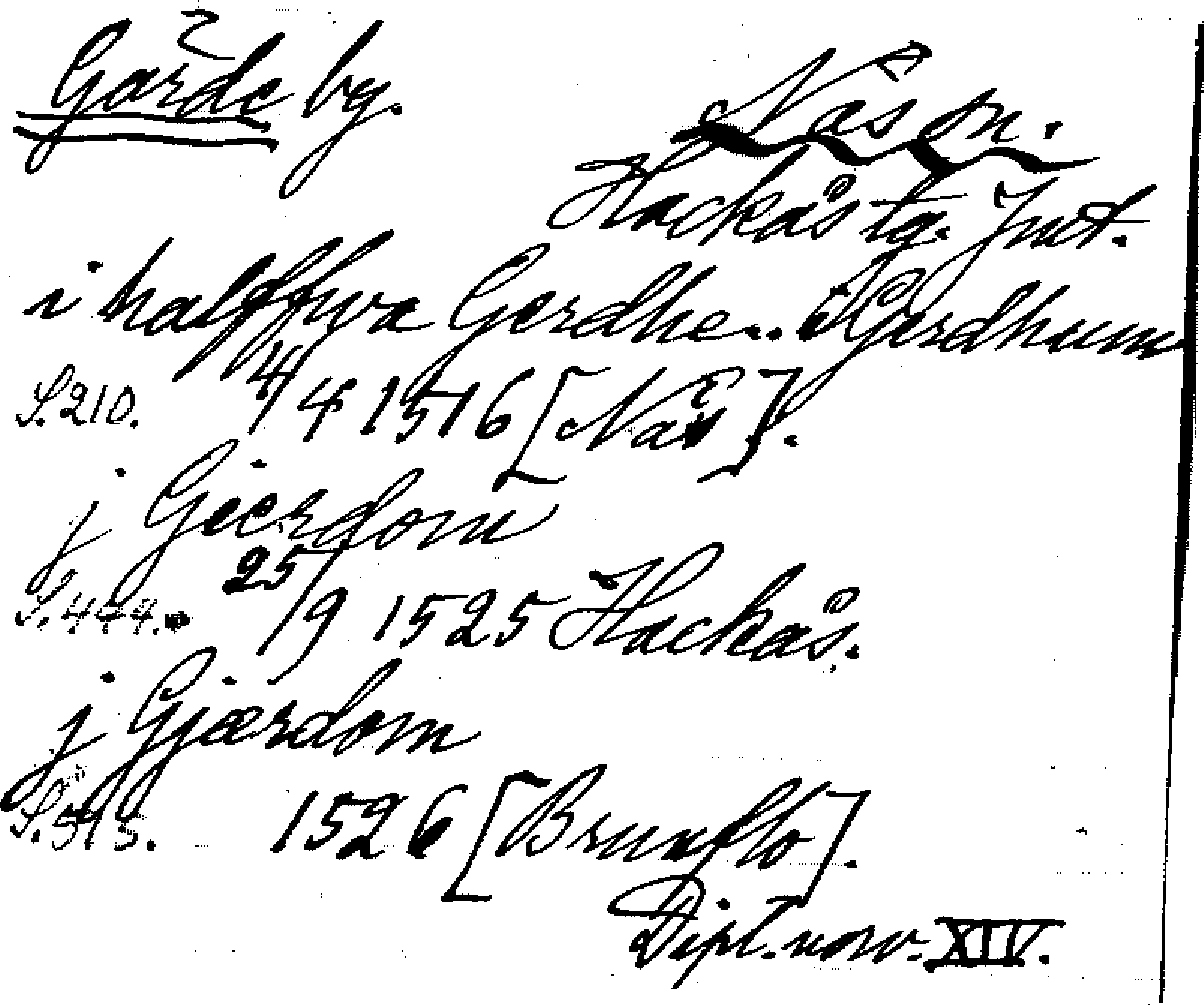 Gärde by.
Näs sn.
Hackås tg. Jmt.
i halffwa Gerdhe.. i Gerdhum
S. 210. 4/4 1516 [Näs].
j Gierdom
S. 444. 25/9 1525 Hackås.
j Gjærdom
S. 515. 1526 [Brunflo].
Dipl. norv. XIV.